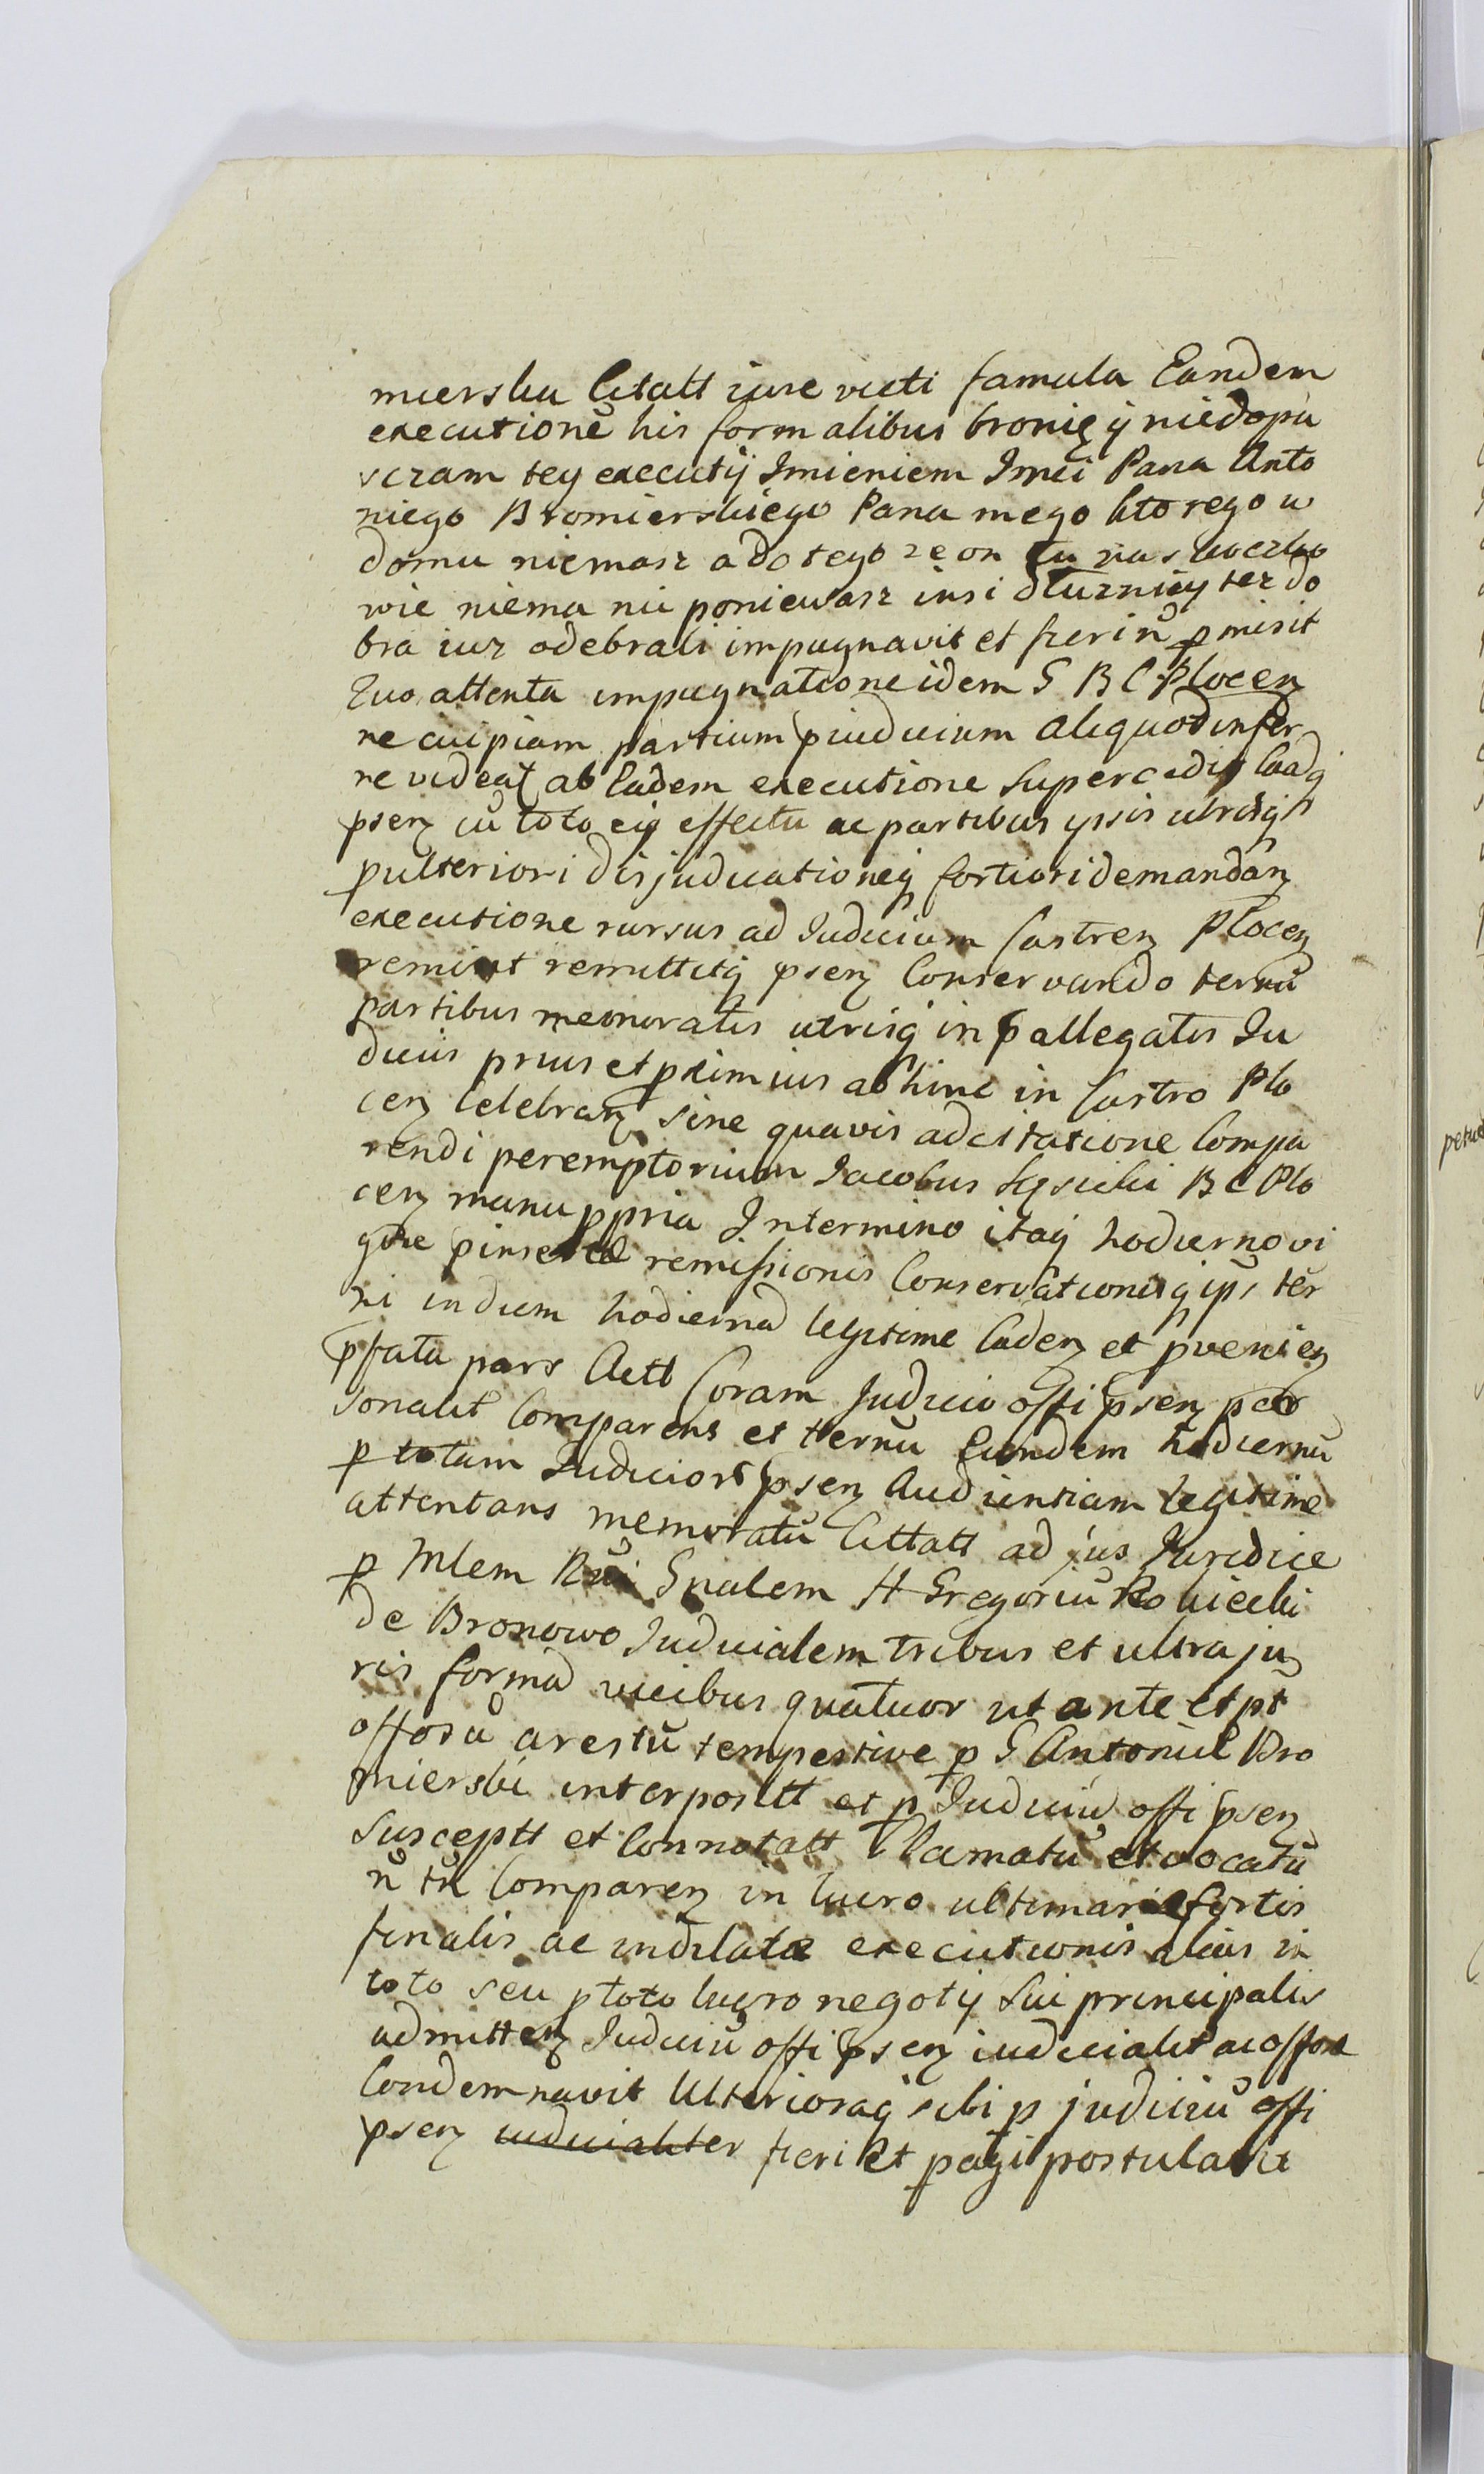 mierski Citatt iure victi famula Eandem
executionē his formalibus bronię ÿ niedopu
szczam tey executij Imieniem Imci Pana Anto
niego Bromierskiego Pana mego ktorego w
domu niemasz a do tego ze on tu na Skoczko
wie niema nic poniewasz insi dłuznicy tez do
bra iuz odebrali impugnavit et fieri nō pmisit
Quo attenta impugnatione idem G B C Plocen
ne cuipiam partium piudicium aliquod infer
re videat ab Eadem executione Supercedit
psen cū toto eiq effectu ac partibus ipsis utrisq
p ulteriori disjudicationeq fortiori demandan
executione rursus ad Iudicium Castren Plocen
remisit remittitq psen Conservando ternū
partibus memoratis utrisq in p allegatis Iu
diciis prius et pximius abhinc in Castro Plo
cen Celebran sine quavis adcitatione Compa
rendi peremptorium Jacobus B C Plo
cen manu ppria In termino itaq hodierno vi
gore pinsertæ remissionis Conservationisq ips ter
ni in diem hodiernā legitime Caden et pvenien
pfata pars Actt Coram Iudicio offi psen per
sonalit Comparens et ternū Eundem hodiernū
p totam Iudicior psen Audientiam legitime
attentans memoratū Cittatt ad jus Juridice
p Mlem Rni Gnalem H Gregoriū
de Bronowo Iudicialem tribus et ultra ju
ris formā vicibus quatuor ut ante et pt
offosū arestū tempestive p G Antoniū Bro
mierski interpositt et p Iudiciū offi psen
Susceptt et Connotatt Clamatū et vocatū
nō tn Comparen in lucro ultimariæ fortis
finalis ac indilatæ executionis alias in
toto seu p toto lucro negotij Sui principalis
admitten Iudiciū offi psen iudicialit ac offose
Condemnavit Ulterioraq sibi p judiciū offi
psen iudicialiter fieri et pagi postulavit
petud